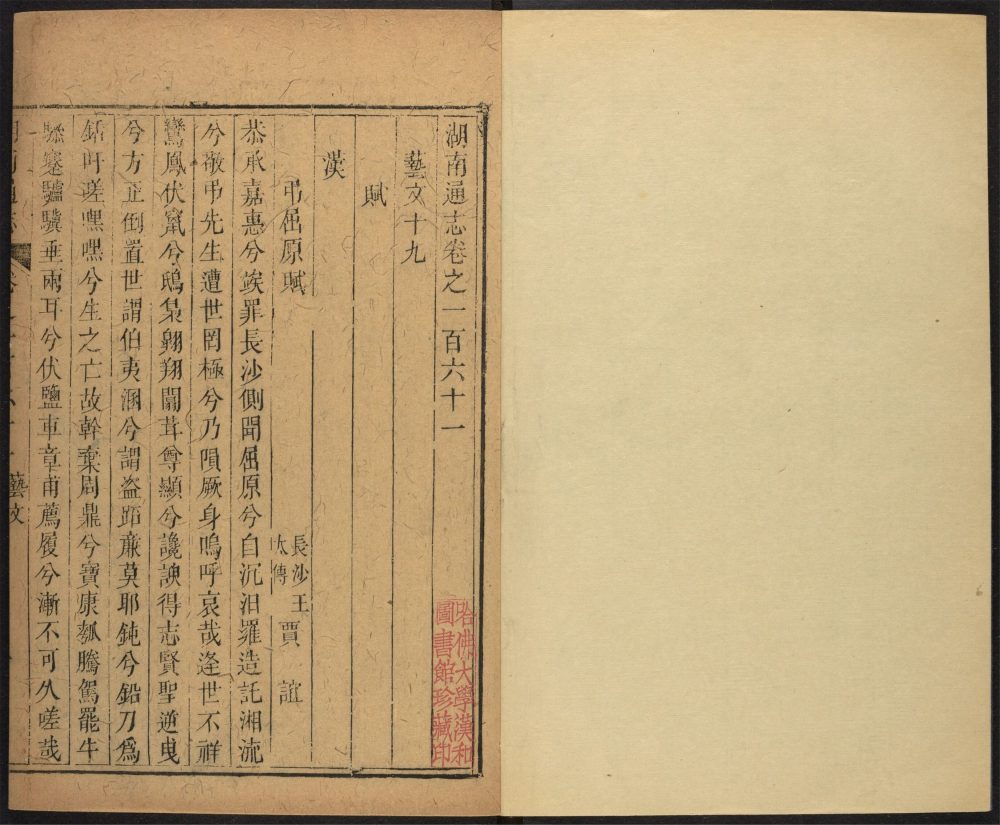 湖南通志卷之一百六十一
藝文十九
賦
漢
弔屈原賦
長沙王
太傅
賈誼
恭承嘉惠兮竢罪長沙側聞屈原兮自沉汨羅造託湘流
兮敬弔先生遭世罔極兮乃隕厥身嗚呼哀哉逢世不祥
鸞鳳伏竄兮鴟梟翱翔闒茸尊顯兮讒諛得志賢聖逆曳
兮方正倒置世謂伯夷溷兮謂盜跖廉莫耶鈍兮鉛刀爲
銛吁嗟嘿嘿兮生之亡故幹棄周鼎兮寶康瓠騰駕罷牛
驂蹇驢驥垂兩耳兮伏鹽車章甫薦履兮漸不可久嗟哉
藝文
哈佛大學漢和
圖書館珍藏印